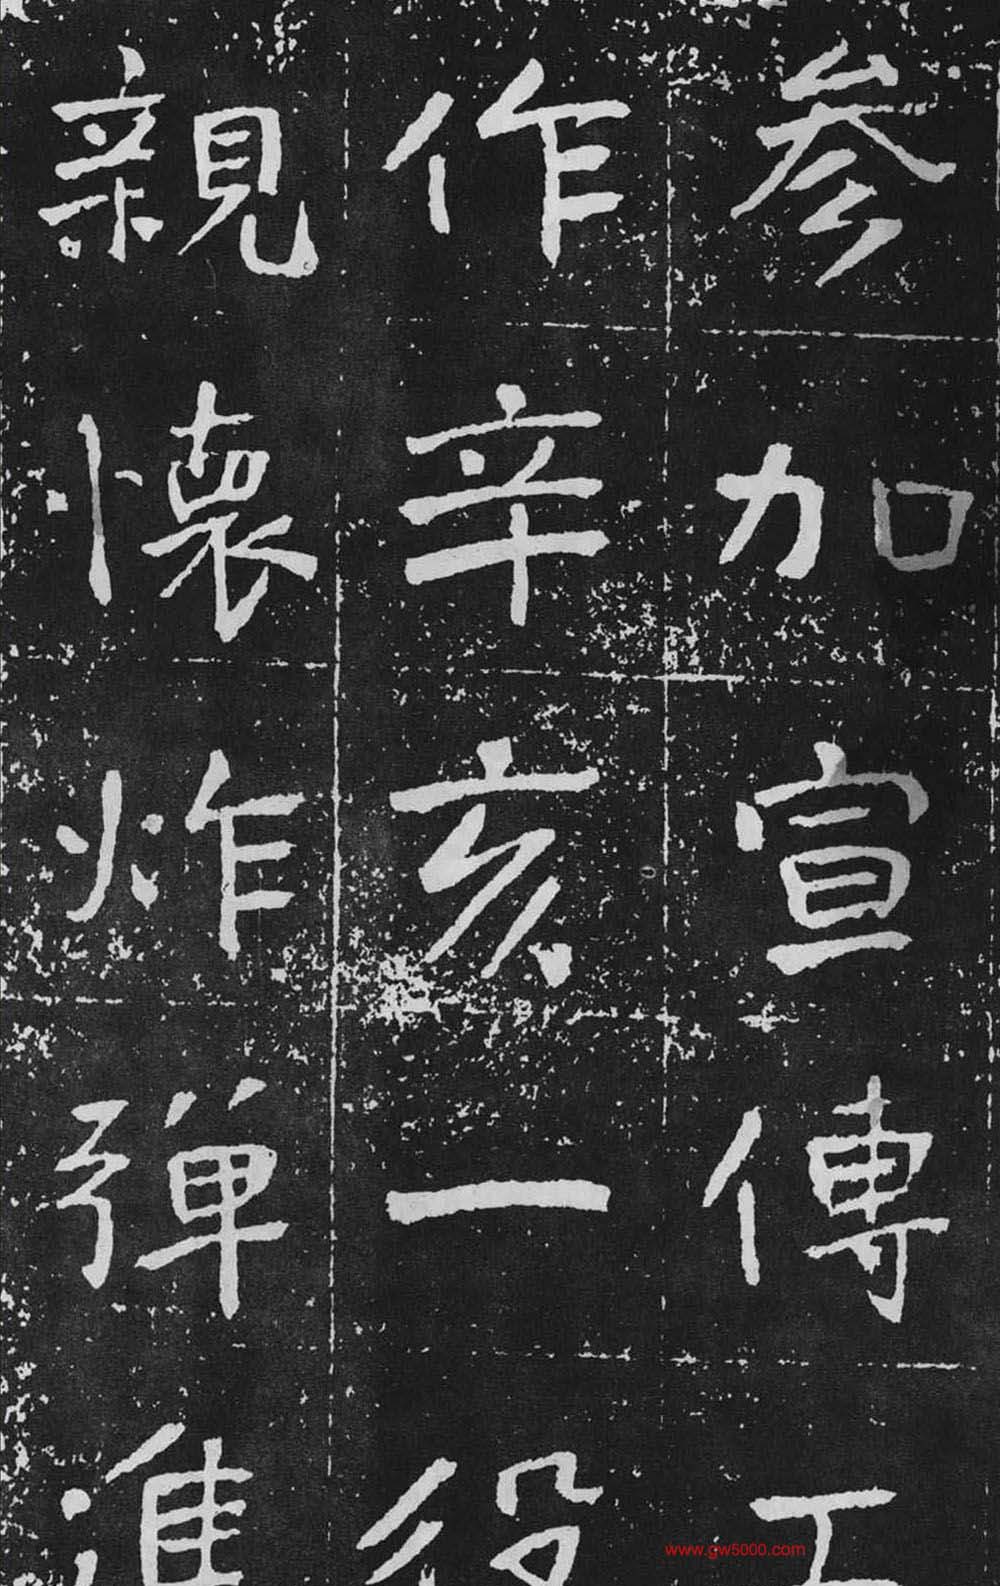 参加宣傳工
作辛亥一役
親懷炸彈進
www.gw5000.com